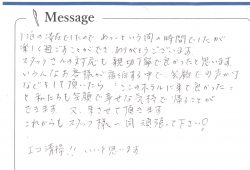 Message
1泊の滞在でしたので、あっという間の時間でしたが
楽しく過ごすことができ、ありがとうございます
スタッフさんの対応も親切丁寧で良かったと思います
いろんなお客様が宿泊する中で、笑顔での声かけ
などをして頂いたら「このホテルに来て良かった」
と私たちも笑顔で幸せな気持で帰ることが
できます 又、来させて頂きます
これからもスタッフ様一同頑張って下さい!
エコ清掃!! いいと思います